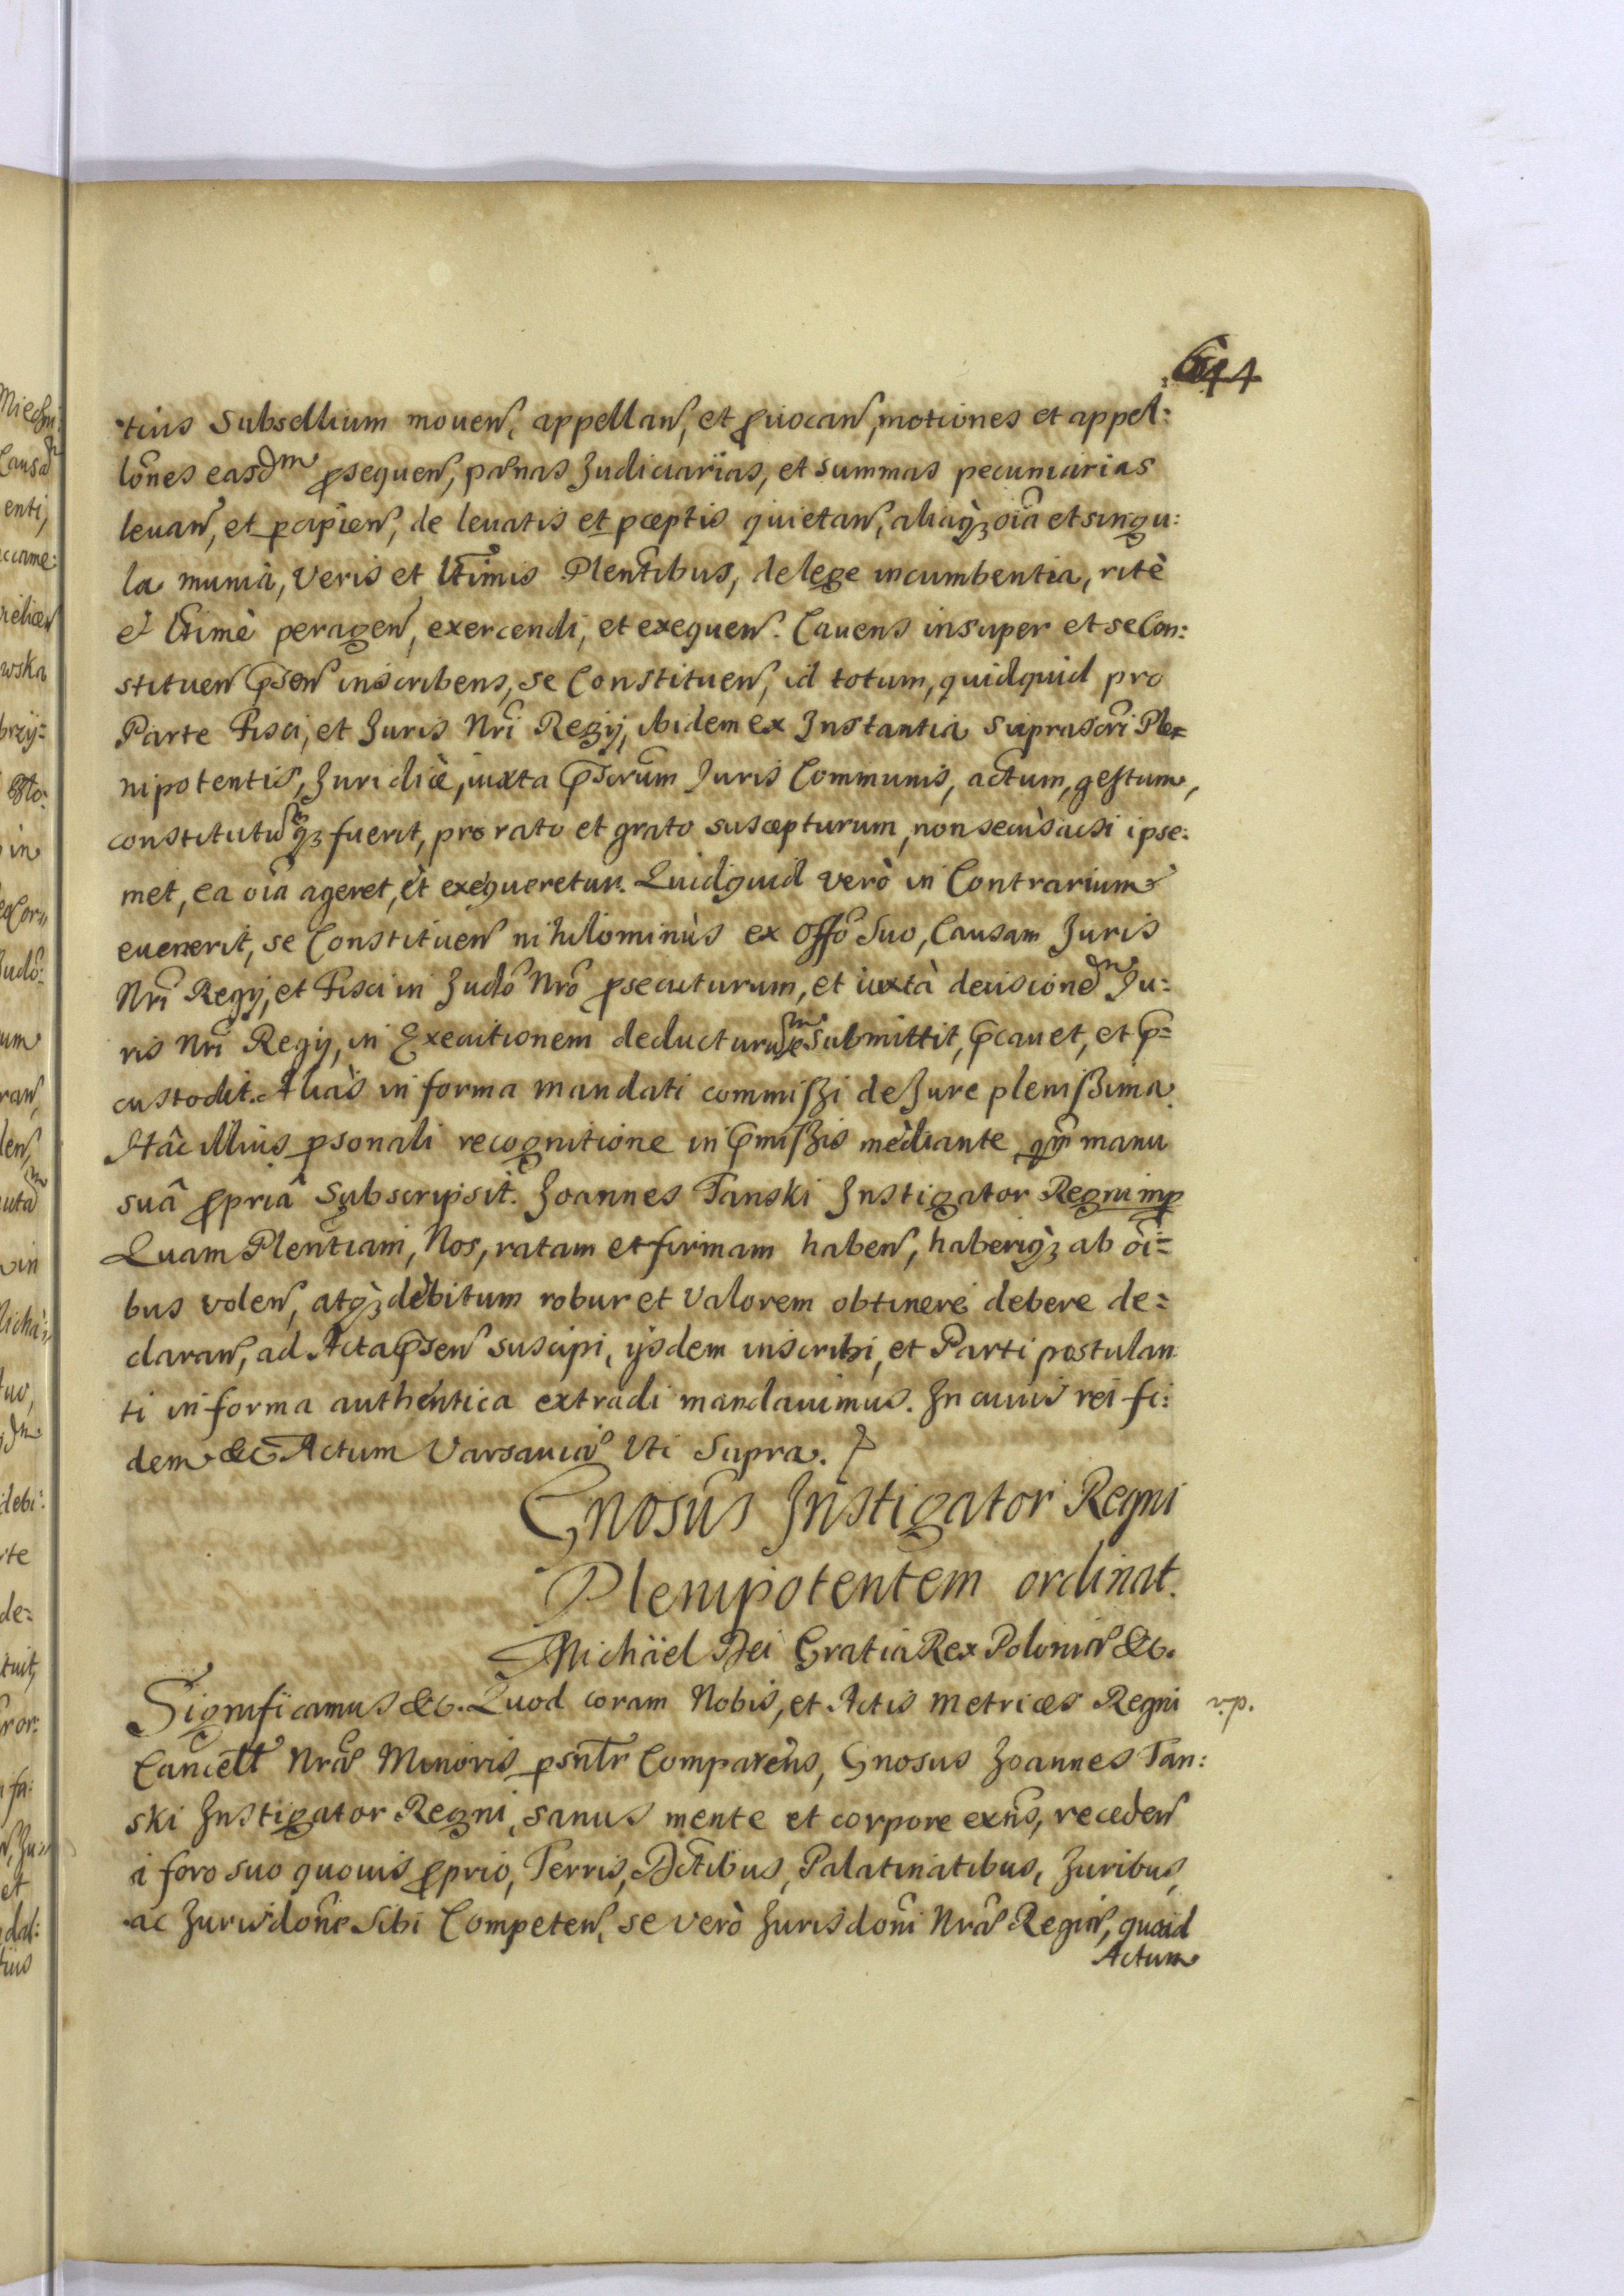 644
tius Subsellium mouen, appellan, et prouocan, motiones et appel:
lones easdm prosequen, pænas Judiciarias, et summas pecuniarias
leuan, et percipien, de leuatis et perceptis quietan, aliaq; oia et singu:
la munia, veris et ltimis Plentibus, de lege incumbentia, ritè
et ltimè peragen, exercendi, et exequen. Cauens insuper et se Con:
stituen præsen inscribens, se Constituen, id totum, quidquid pro
Parte Fisci, et Juris Nri Regij, ibidem ex Instantia suprascri Ple=
nipotentis, Juridicè, iuxta præscrum Juris Communis, actum, gestum,
constitutumq; fuerit, pro rato et grato suscepturum, non secùs acsi ipse:
met, ea oia ageret, et exequeretur. Quidquid verò in Contrarium
euenerit, se Constituen nihilominùs ex Offo Suo, Causam Juris
Nri Regij, et Fisci in Judo Nro prosecuturum, et iuxtà decisionem Ju:
ris Nri Regij, in Executionem deducturum submittit, præcauet, et præ=
custodit. Aliàs in forma mandati commissi de Jure plenissima
Hâc illius personali recognitione in præmissis mediante, qm manu
suâ propriâ Subscripsit. Joannes Tanski Instigator Regni mp
Quam Plentiam, Nos, ratam et firmam haben, haberiq; ab oi=
bus volen, atq; debitum robur et Valorem obtinere debere de=
claran, ad Acta præsen suscipi, ijsdem inscribi, et Parti postulan
ti in forma authentica extradi mandauimus. In cuius rei fi:
dem &c Actum Varsauiæ Vti Supra.
Gnosus Instigator Regni
Plenipotentem ordinat.
Michäel Dei Gratia Rex Poloniæ &c.
Significamus &c. Quod coram Nobis, et Actis Metrices Regni v.p.
Cancell Nræ Minoris psntr Comparens, Gnosus Joannes Tan:
ski Instigator Regni, sanus mente et corpore exns, receden
à foro suo quouis proprio, Terris, Dctibus, Palatinatibus, Juribus,
ac Jurisdone Sibi Competen, se verò Jurisdoni Nræ Regiæ, quoad
Actum